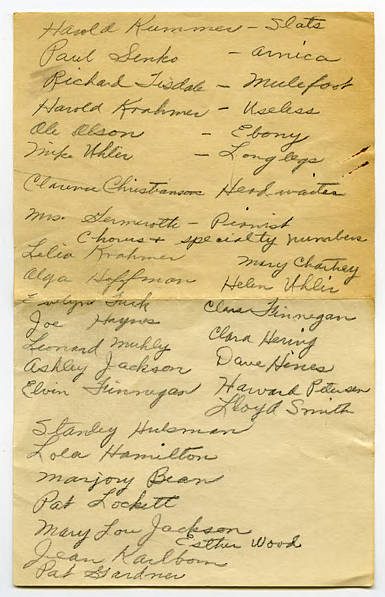 Harold Kummer - Slats
Paul Senko - Arnica
Richard Tisdale - Mulefoot
Harold Krahmer - Useless
Ole Olson - Ebony
Mike Uhlir - Long legs
Clarence Christianson Head waiter
Mrs. Germeroth - Pianist
Chorus & specialty numbers
Lelia Krahmer Mary Chartney
Olga Hoffman Helen Uhlir
Evelyn Turk Clara Finnegan
Joe Haynes Clara Hering
Leonard Muhly Dave Hines
Ashley Jackson Howard Petersen
Elvin Finnegan Lloyd Smith
Stanley Hulsman
Lola Hamilton
Marjory Bean
Pat Lockett
Mary Lou Jackson
Esther Wood
Jean Karlbom
Pat Gardner